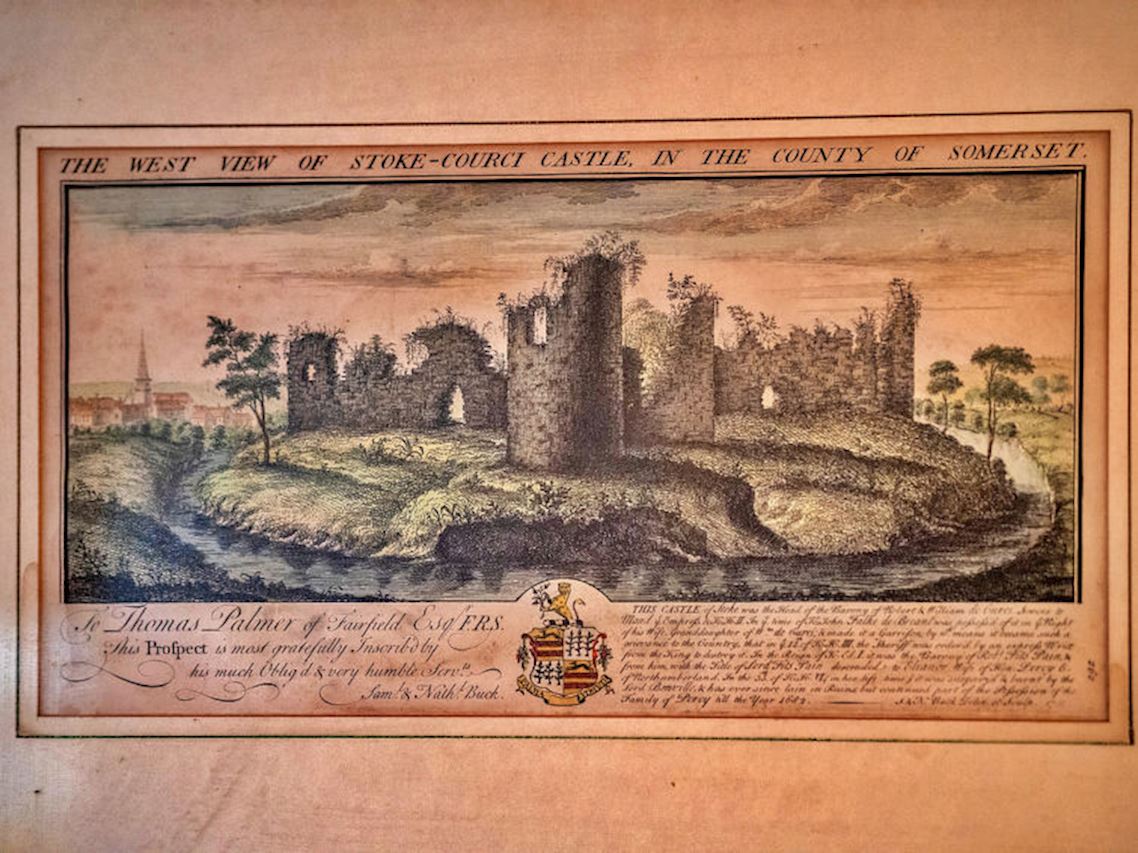 THE WEST VIEW OF STOKE-COURCI CASTLE, IN THE COUNTY OF SOMERSET.
To Thomas Palmer of Fairfield Esqr. F.R.S.
This Prospect is most gratefully Inscrib'd by
his much Oblig'd & very humble Servts.
Saml. & Nathl. Buck.
THIS CASTLE of Stoke was the Head of the Barony of Robert & William de Curci, Sewers to
Maud ye Empress & K. H. II. In ye time of K. John Falke de Breant was possess'd of it in Right
of his Wife, Granddaughter of Wm. de Curci, & made it a Garrison, by wch. means it became such a
grievance to the Country, that in ye of K. H. III. the Sheriff was order'd by a Writ
from the King to destroy it. In the Reign of K. E. I. it was the Barony of Robt. Fitz Pain, &
from him, with the Title of Lord Fitz Pain descended to
of Northumberland. In the of K. H. VI, in his life time, it was by the
Lord Bonville, & has ever since lain in Ruins, but continued part of the Possession of the
Family of Percy till the Year
S. & N. Buck Delin. et Sculp.